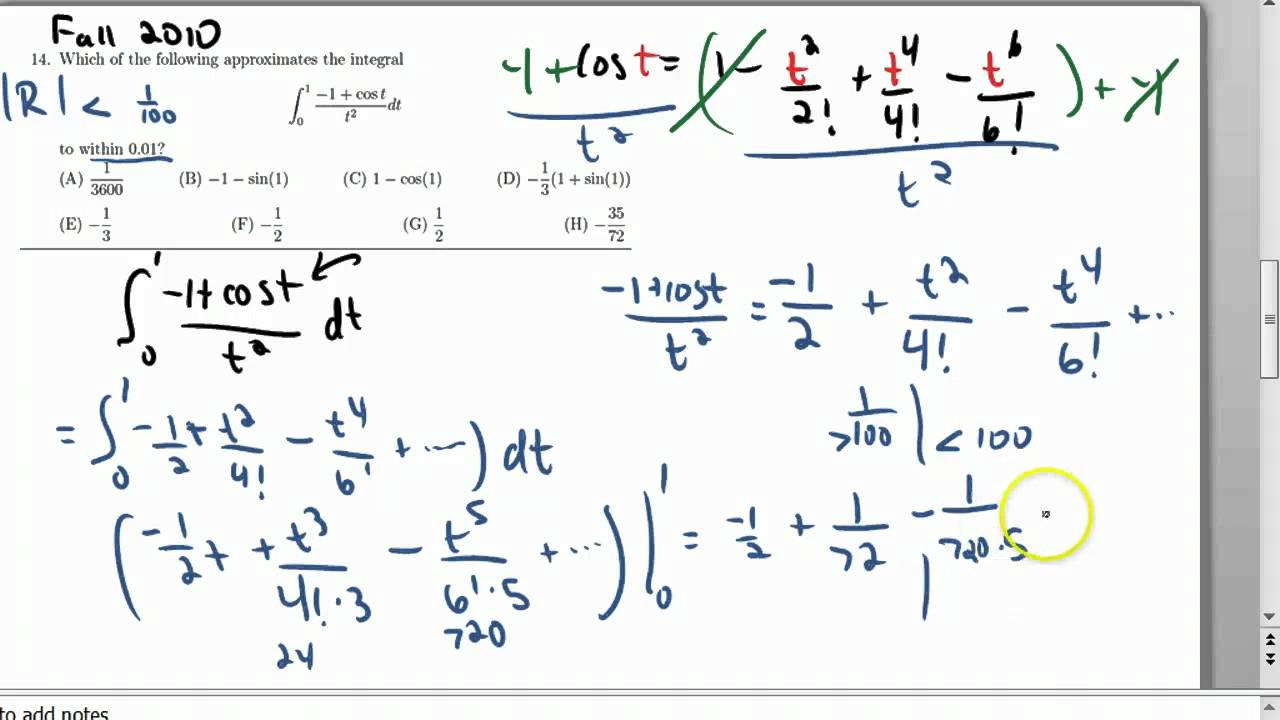 Fall 2010
14. Which of the following approximates the integral
|R| < 1/100
∫₀¹ (−1 + cos t)/t² dt
to within 0.01?
(A) 1/3600 (B) −1 − sin(1) (C) 1 − cos(1) (D) −1/3(1 + sin(1))
(E) −1/3 (F) −1/2 (G) 1/2 (H) −35/72
(-1 + cos t)/t² = ((1 − t²/2! + t⁴/4! − t⁶/6!) + -1)/t²
∫₀¹ (−1 + cos t)/t² dt
(−1 + cos t)/t² = −1/2 + t²/4! − t⁴/6! + ...
= ∫₀¹ −1/2 + t²/4! − t⁴/6! + ...) dt
> 1/100 | < 100
(−1/2 t + t³/4!·3 − t⁵/6!·5 + ...) |₀¹ = −1/2 + 1/72 − 1/720·5
24 720
to add notes